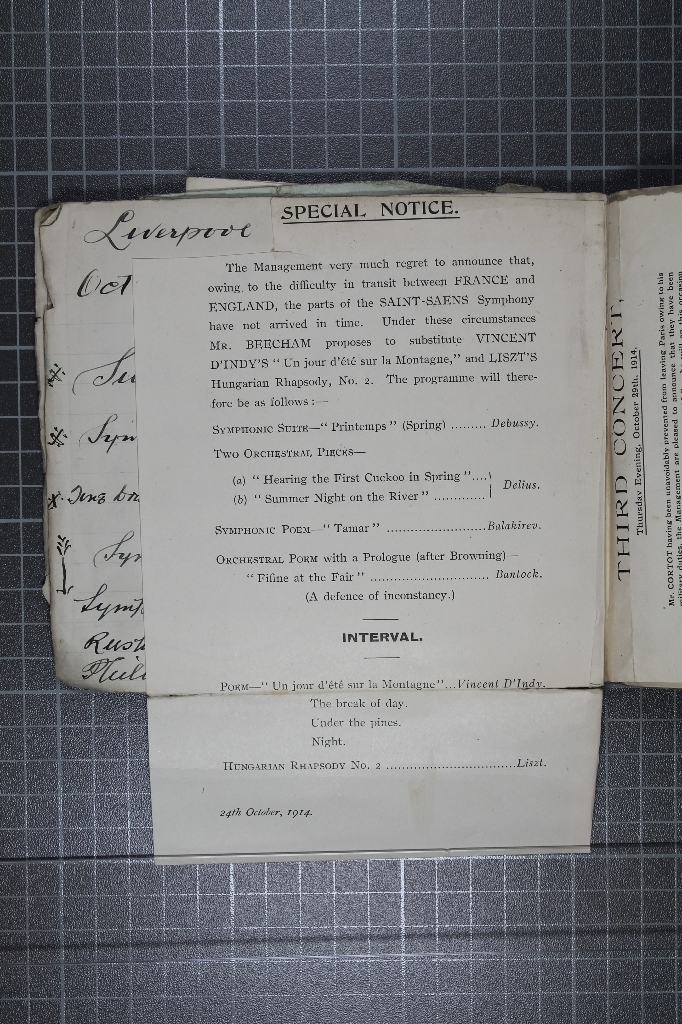 Liverpool
Oct
Sym
Symp
SPECIAL NOTICE.
The Management very much regret to announce that,
owing to the difficulty in transit between FRANCE and
ENGLAND, the parts of the SAINT-SAENS Symphony
have not arrived in time. Under these circumstances
MR. BEECHAM proposes to substitute VINCENT
D'INDY'S "Un jour d'été sur la Montagne," and LISZT'S
Hungarian Rhapsody, No. 2. The programme will there-
fore be as follows :—
SYMPHONIC SUITE—"Printemps" (Spring) ......... Debussy.
TWO ORCHESTRAL PIECES—
(a) "Hearing the First Cuckoo in Spring"....
(b) "Summer Night on the River" ............. } Delius.
SYMPHONIC POEM—"Tamar" .........................Balakirev.
ORCHESTRAL POEM with a Prologue (after Browning)—
"Fifine at the Fair" .............................. Bantock.
(A defence of inconstancy.)
INTERVAL.
POEM—"Un jour d'été sur la Montagne"...Vincent D'Indy.
The break of day.
Under the pines.
Night.
HUNGARIAN RHAPSODY No. 2 .................................Liszt.
24th October, 1914.
THIRD CONCERT,
Thursday Evening, October 29th, 1914.
Mr. CORTOT having been unavoidably prevented from leaving Paris owing to his
military duties, the Management are pleased to announce that they have been